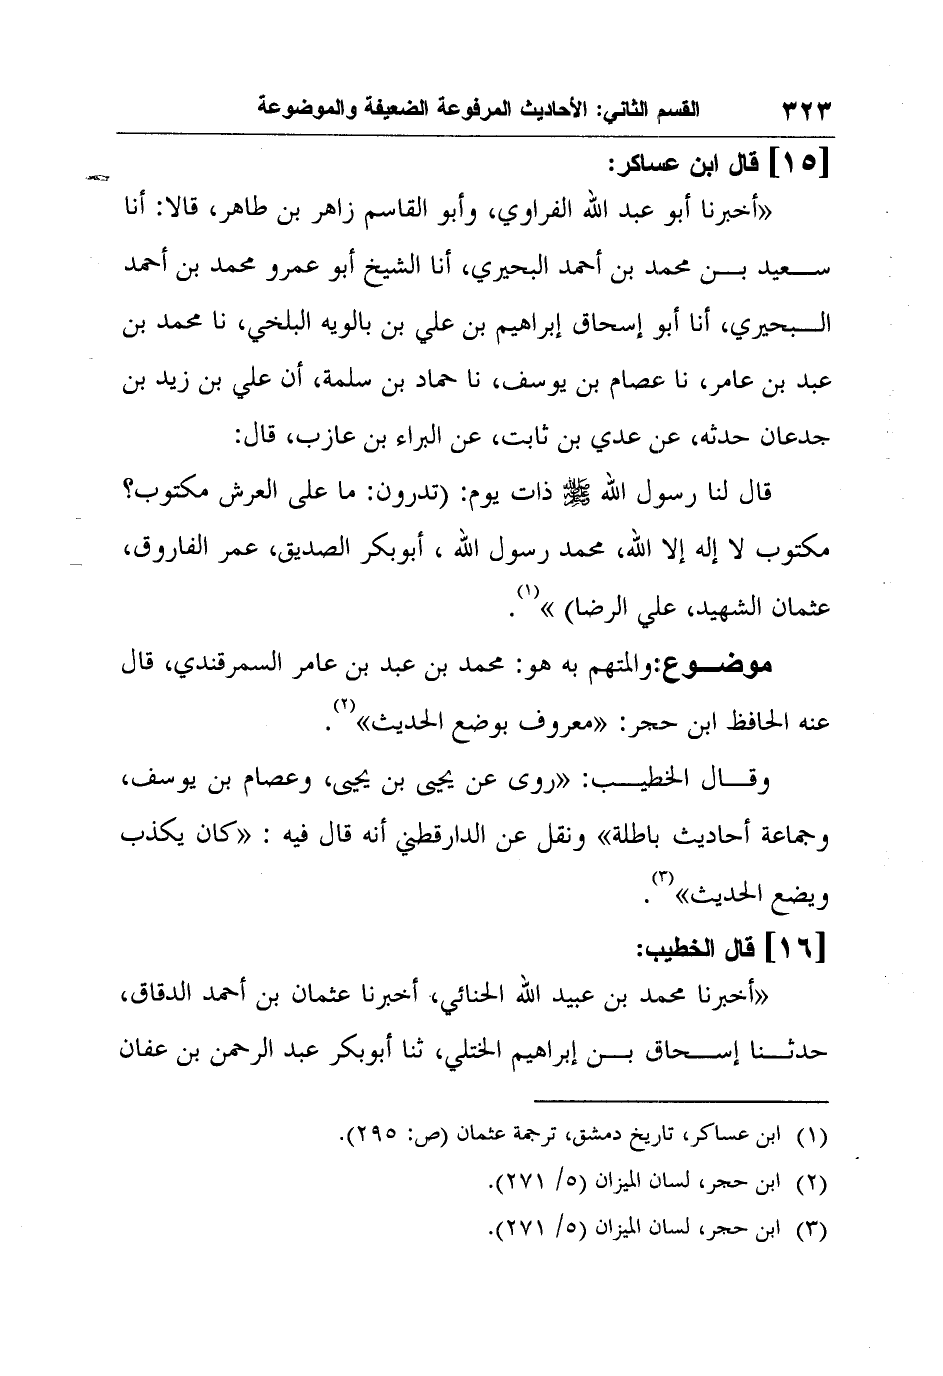 ٣٢٣ القسم الثاني: الأحاديث المرفوعة الضعيفة والموضوعة
[١٥] قال ابن عساكر:
«أخبرنا أبو عبد الله الفراوي، وأبو القاسم زاهر بن طاهر، قالا: أنا
سعيد بن محمد بن أحمد البحيري، أنا الشيخ أبو عمرو محمد بن أحمد
البحيري، أنا أبو إسحاق إبراهيم بن علي بن بالويه البلخي، نا محمد بن
عبد بن عامر، نا عصام بن يوسف، نا حماد بن سلمة، أن علي بن زيد بن
جدعان حدثه، عن عدي بن ثابت، عن البراء بن عازب، قال:
قال لنا رسول الله ﷺ ذات يوم: (تدرون: ما على العرش مكتوب؟
مكتوب لا إله إلا الله، محمد رسول الله ، أبوبكر الصديق، عمر الفاروق،
عثمان الشهيد، علي الرضا) »(١).
موضوع:والمتهم به هو: محمد بن عبد بن عامر السمرقندي، قال
عنه الحافظ ابن حجر: «معروف بوضع الحديث»(٢).
وقال الخطيب: «روى عن يحيى بن يحيى، وعصام بن يوسف،
وجماعة أحاديث باطلة» ونقل عن الدارقطني أنه قال فيه : «كان يكذب
ويضع الحديث»(٣).
[١٦] قال الخطيب:
«أخبرنا محمد بن عبيد الله الحنائي، أخبرنا عثمان بن أحمد الدقاق،
حدثنا إسحاق بن إبراهيم الختلي، ثنا أبوبكر عبد الرحمن بن عفان
(١) ابن عساكر، تاريخ دمشق، ترجمة عثمان (ص: ٢٩٥).
(٢) ابن حجر، لسان الميزان (٥/ ٢٧١).
(٣) ابن حجر، لسان الميزان (٥/ ٢٧١).